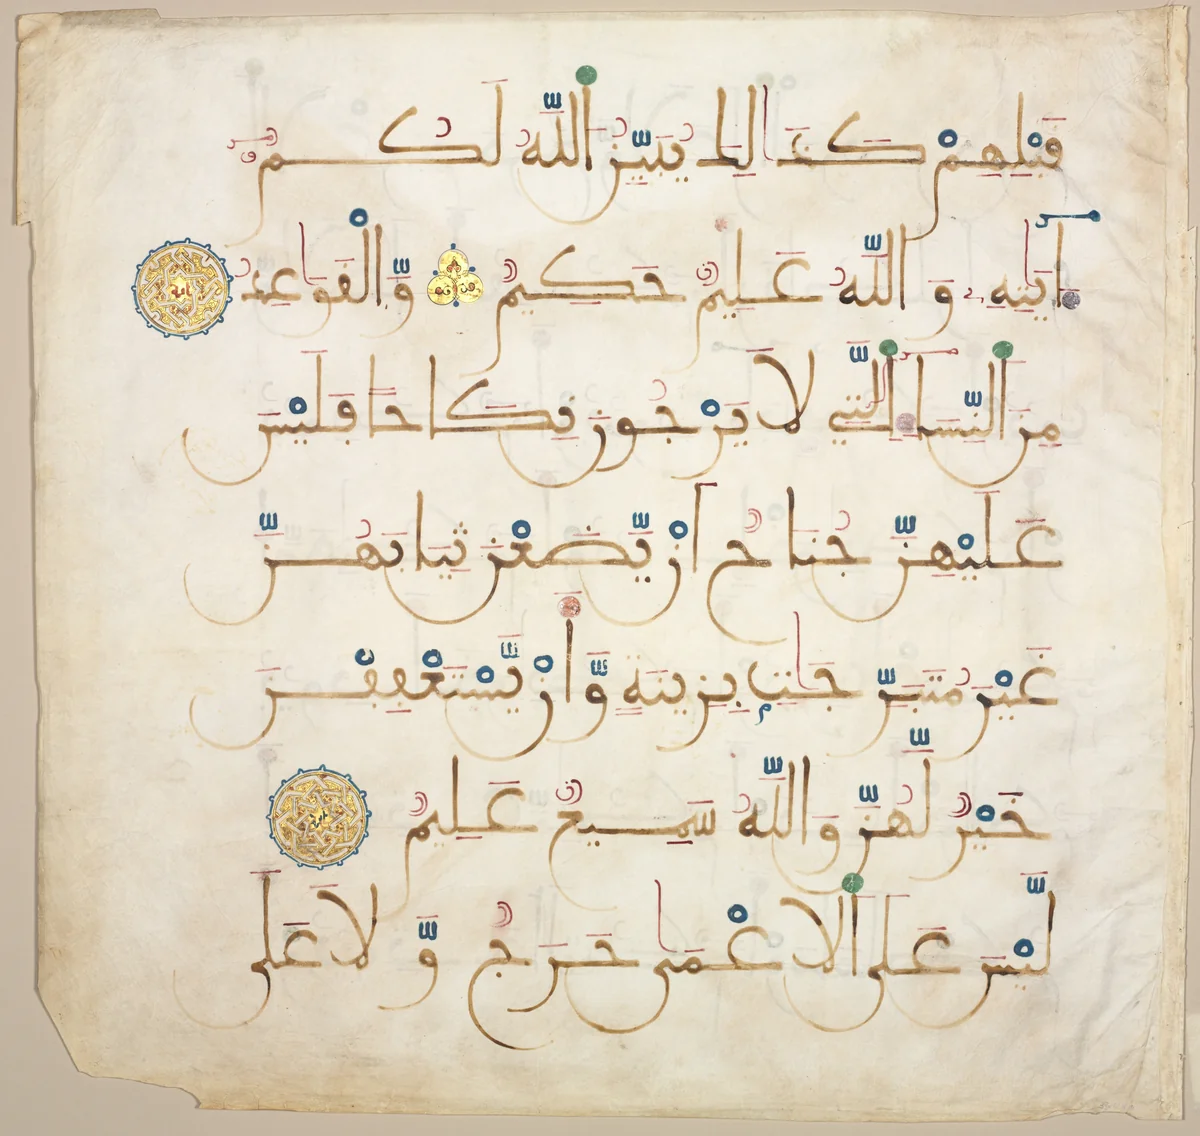 قَبْلِهِمْ كَذَٰلِكَ يُبَيِّنُ اللَّهُ لَكُمْ
ءَايَٰتِهِ وَاللَّهُ عَلِيمٌ حَكِيمٌ وَّالْقَوَاعِدُ
مِنَ النِّسَاءِ الَّتِي لَا يَرْجُونَ نِكَاحًا فَلَيْسَ
عَلَيْهِنَّ جُنَاحٌ أَنْ يَّضَعْنَ ثِيَابَهُنَّ
غَيْرَ مُتَبَرِّجَٰتٍ بِزِينَةٍ وَّأَنْ يَّسْتَعْفِفْنَ
خَيْرٌ لَّهُنَّ وَاللَّهُ سَمِيعٌ عَلِيمٌ
لَّيْسَ عَلَى الَاعْمَىٰ حَرَجٌ وَّلَا عَلَى